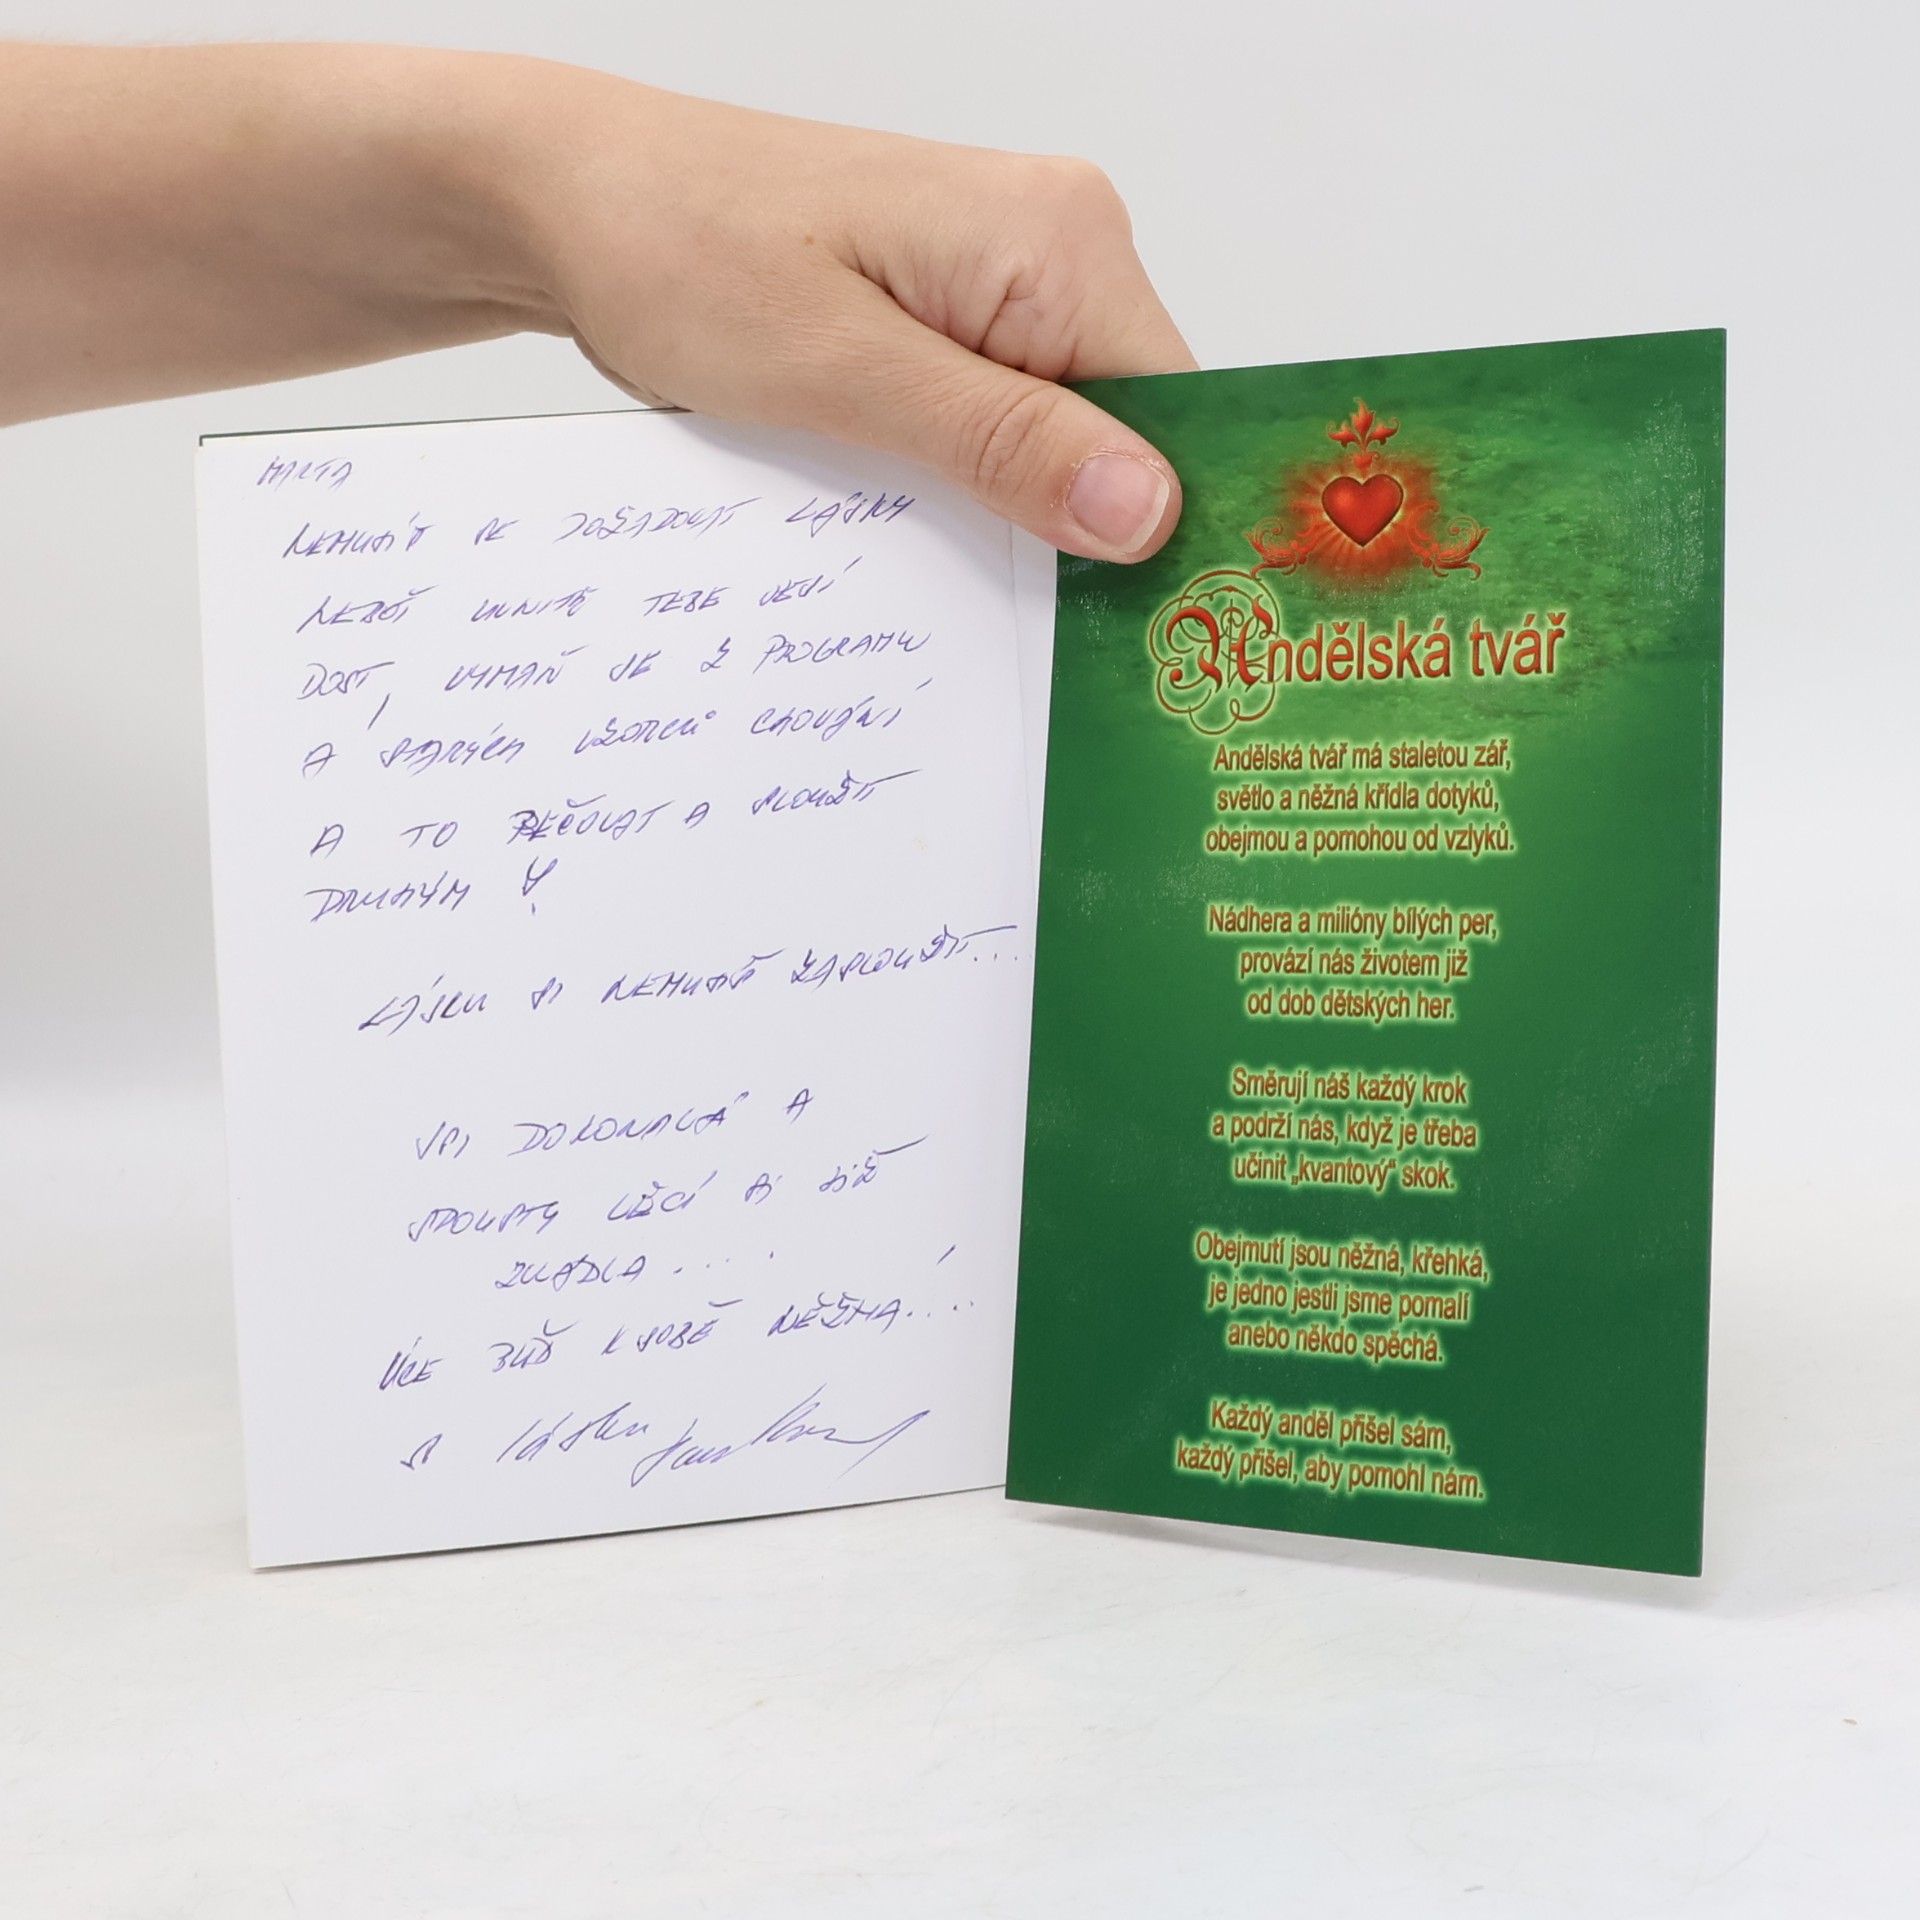 MARTA
NEMUSÍŠ SE DOŽADOVAT LÁSKY
NEBOŤ UVNITŘ TEBE JE JÍ
DOST, VYMAŇ SE Z PROGRAMU
A STARÝCH VZORCŮ CHOVÁNÍ
A TO PEČOVAT A SLOUŽIT
DRUHÝM!
LÁSKU SI NEMUSÍŠ ZASLOUŽIT...
JSI DOKONALÁ A
SPOUSTU VĚCÍ SI JIŽ
ZVLÁDLA....
VÍCE BUĎ K SOBĚ NĚŽNÁ!...
S láskou
Andělská tvář
Andělská tvář má staletou zář,
světlo a něžná křídla dotyků,
obejmou a pomohou od vzlyků.
Nádhera a milióny bílých per,
provází nás životem již
od dob dětských her.
Směrují náš každý krok
a podrží nás, když je třeba
učinit „kvantový“ skok.
Obejmutí jsou něžná, křehká,
je jedno jestli jsme pomalí
anebo někdo spěchá.
Každý anděl přišel sám,
každý přišel, aby pomohl nám.